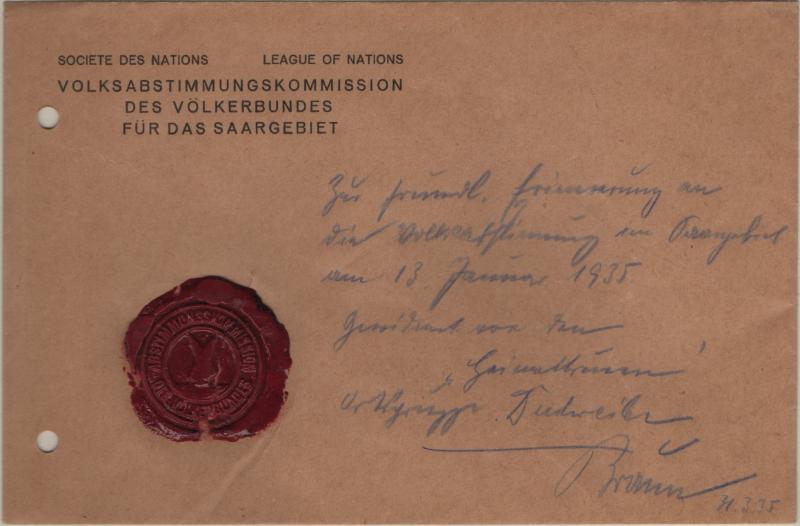 SOCIETE DES NATIONS LEAGUE OF NATIONS
VOLKSABSTIMMUNGSKOMMISSION
DES VÖLKERBUNDES
FÜR DAS SAARGEBIET
Zur freundl. Erinnerung an
die Volksabstimmung im Saargebiet
am 13. Januar 1935.
Gewidmet von den
"Heimattreuen"
Ortsgruppe Dudweiler
Braun
31.3.35